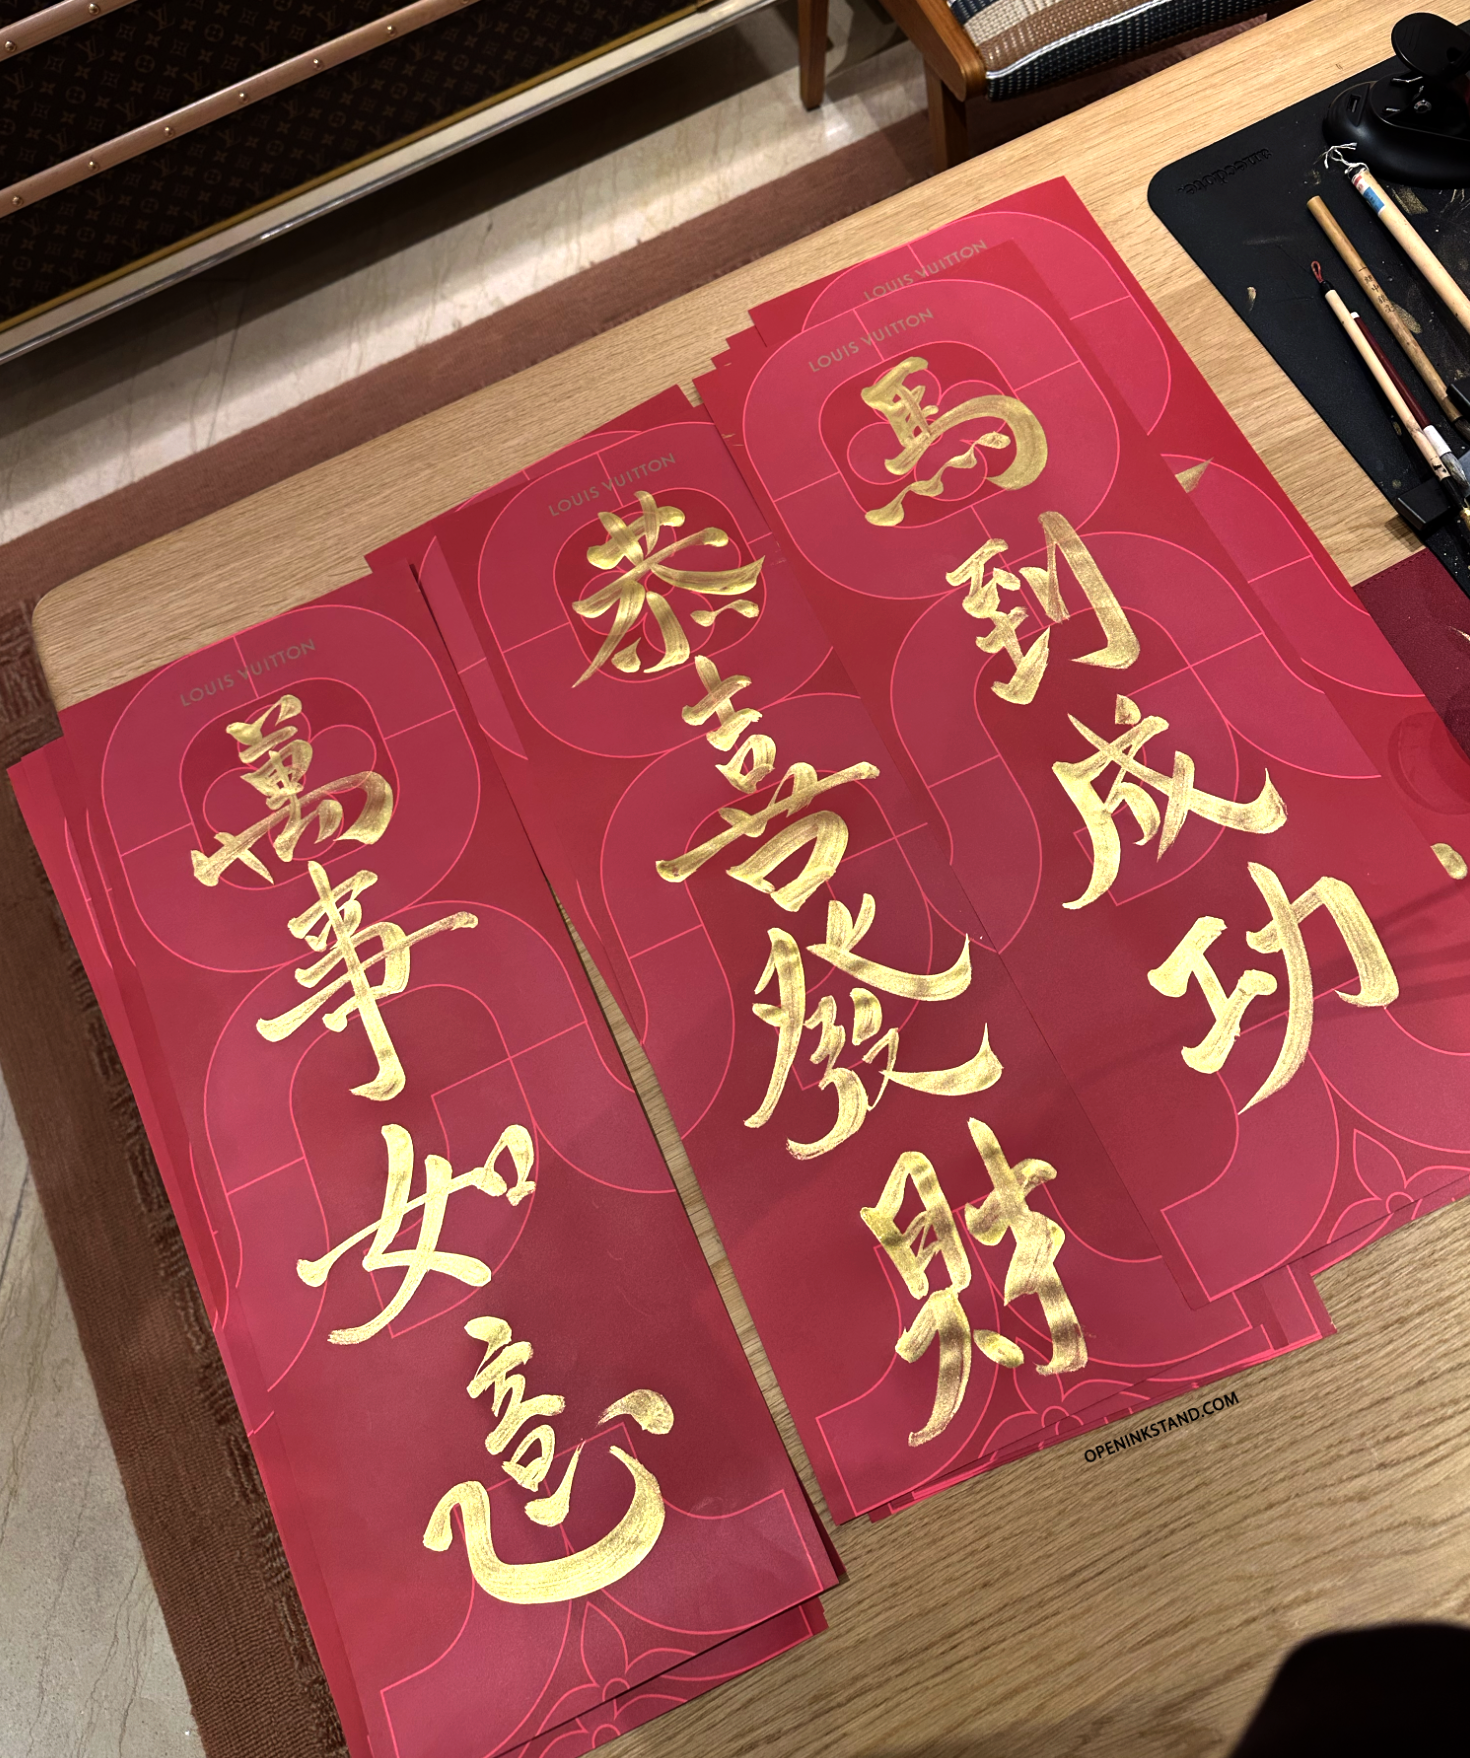 LOUIS VUITTON
萬事如意
LOUIS VUITTON
恭喜發財
LOUIS VUITTON
馬到成功
LOUIS VUITTON
anecdote.
OPENINKSTAND.COM